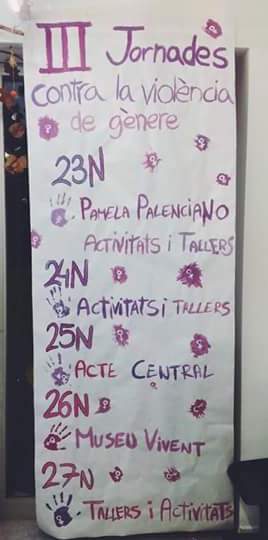 III Jornades
contra la violència
de gènere
23N
Pamela Palenciano
Activitats i Tallers
24N
Activitats i Tallers
25N
Acte Central
26N
Museu Vivent
27N
Tallers i Activitats